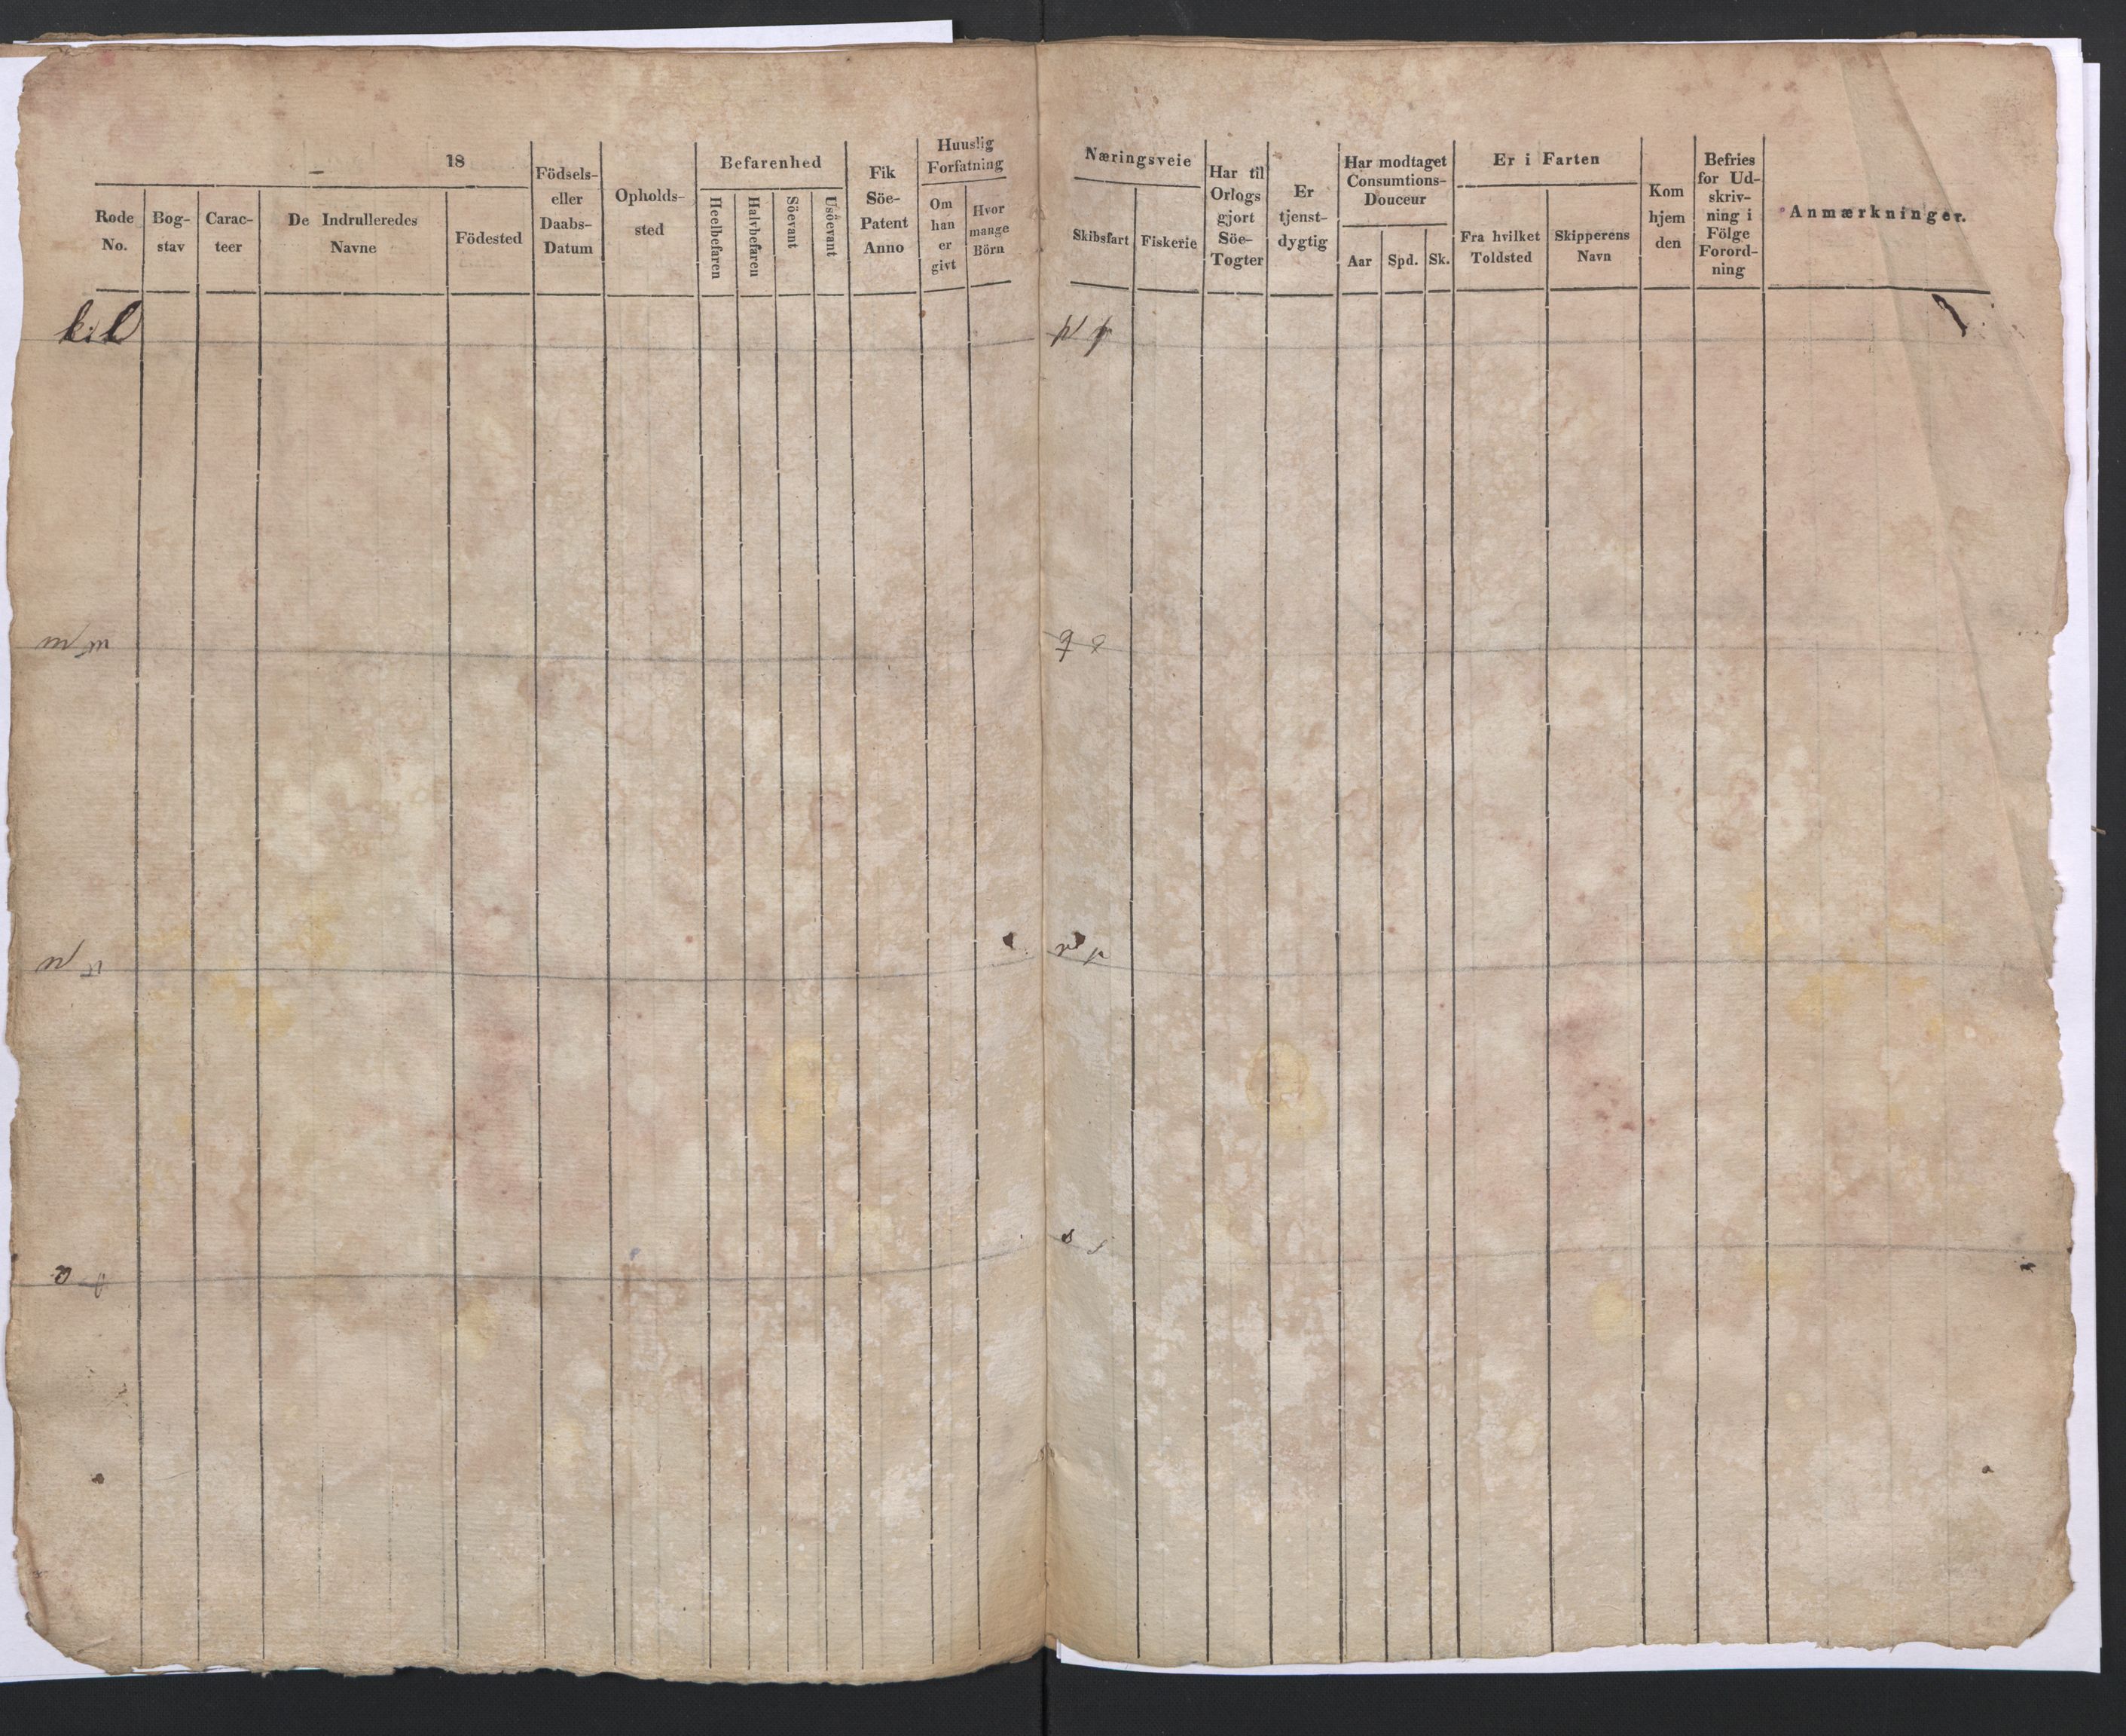 18
Rode No.
Bog-stav
Carac-teer
De Indrulleredes Navne
Födested
Födsels- eller Daabs-Datum
Opholds-sted
Befarenhed
Heelbefaren
Halvbefaren
Söevant
Usöevant
Fik Söe-Patent Anno
Huuslig Forfatning
Om han er givt
Hvor mange Börn
Næringsveie
Skibsfart
Fiskerie
Har til Orlogs gjort Söe-Togter
Er tjenst-dygtig
Har modtaget Consumtions-Douceur
Aar
Spd.
Sk.
Er i Farten
Fra hvilket Toldsted
Skipperens Navn
Kom hjem den
Befries for Ud-skriv-ning i Fölge Forord-ning
Anmærkninger.